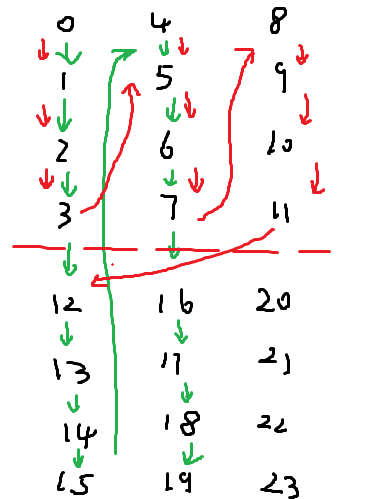 0 4 8
1 5 9
2 6 10
3 7 11
12 16 20
13 17 21
14 18 22
15 19 23